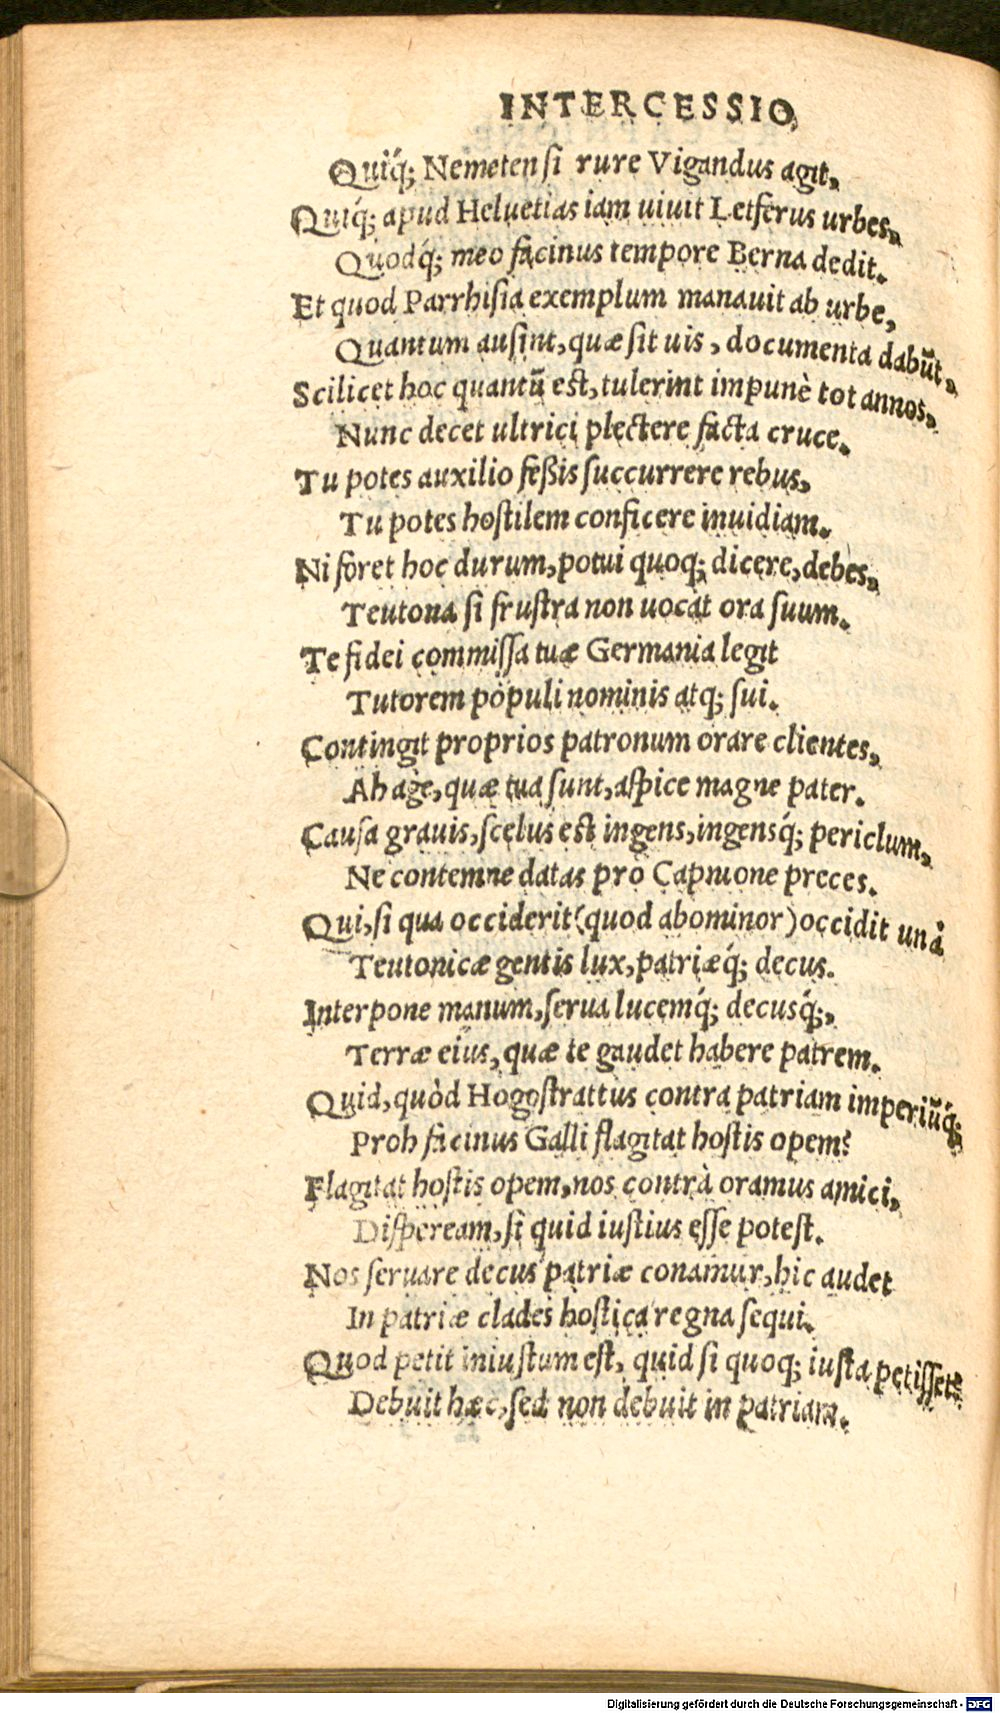 INTERCESSIO,
Quiq́; Nemetensi rure Vigandus agit,
Quiq́; apud Heluetias iam uiuit Letserus urbes,
Quodq́; meo facinus tempore Berna dedit.
Et quod Parrhisia exemplum manauit ab urbe,
Quantum ausint, quæ sit uis, documenta dabũt,
Scilicet hoc quantũ est, tulerint impunè tot annos,
Nunc decet ultrici plectere facta cruce.
Tu potes auxilio feßis succurrere rebus,
Tu potes hostilem conficere inuidiam.
Ni foret hoc durum, potui quoq; dicere, debes,
Teutona si frustra non uocat ora suum.
Te fidei commissa tuæ Germania legit
Tutorem populi nominis atq; sui.
Contingit proprios patronum orare clientes,
Ah age, quæ tua sunt, aspice magne pater.
Causa grauis, scelus est ingens, ingensq́; periclum,
Ne contemne datas pro Capnione preces.
Qui, si qua occiderit (quod abominor) occidit unà
Teutonicæ gentis lux, patriæq́; decus.
Interpone manum, serua lucemq́; decusq́;,
Terræ eius, quæ te gaudet habere patrem.
Quid, quòd Hogostrattus contra patriam imperiũq́;
Proh facinus Galli flagitat hostis opem?
Flagitat hostis opem, nos contrà oramus amici,
Dispeream, si quid iustius esse potest.
Nos seruare decus patriæ conamur, hic audet
In patriæ clades hostica regna sequi.
Quod petit iniustum est, quid si quoq; iusta petisset?
Debuit hæc, sed non debuit in patriam.
Digitalisierung gefördert durch die Deutsche Forschungsgemeinschaft - DFG